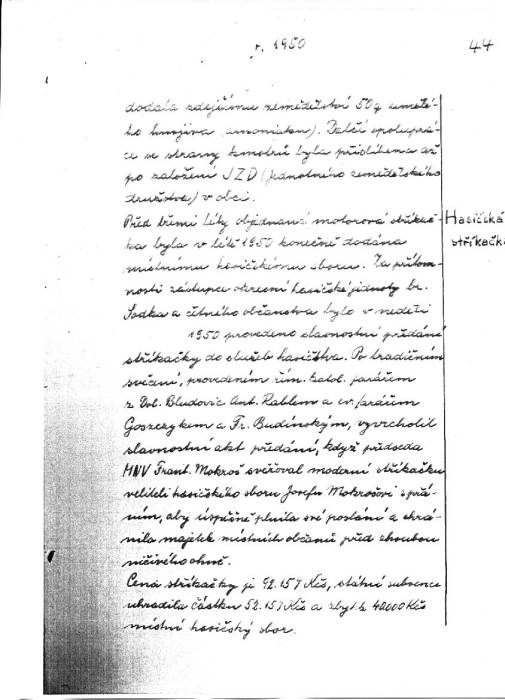 r. 1950
44
dodala zdejšímu zemědělství 50 q umělé-
ho hnojiva (amoniaku). Další spoluprá-
ce se strany kmotrů byla přislíbena až
po založení JZD (Jednotného zemědělského
družstva) v obci.
Před třemi léty objednaná motorová stříkač-
ka byla v létě 1950 konečně dodána
místnímu hasičskému sboru. Za přítom-
nosti zástupce okresní hasičské jednoty br.
a četného občanstva bylo v neděli
1950 provedeno slavnostní předání
stříkačky do služeb hasičstva. Po tradičním
svěcení, provedeném řím. katol. farářem
z Dol. Bludovic Ant. Rablem a ev. farářem
a Fr. Budínským, vyvrcholil
slavnostní akt předání, když předseda
MNV Frant. Mokroš svěřoval moderní stříkačku
veliteli hasičského sboru Josefu Mokrošovi s přá-
ním, aby úspěšně plnila své poslání a chrá-
nila majetek místních občanů před zhoubou
ničivého ohně.
Cena stříkačky je 92.157 Kčs, státní subvence
uhradila částku 52.157 Kčs a zbytek 40.000 Kčs
místní hasičský sbor.
Hasičská
stříkačka